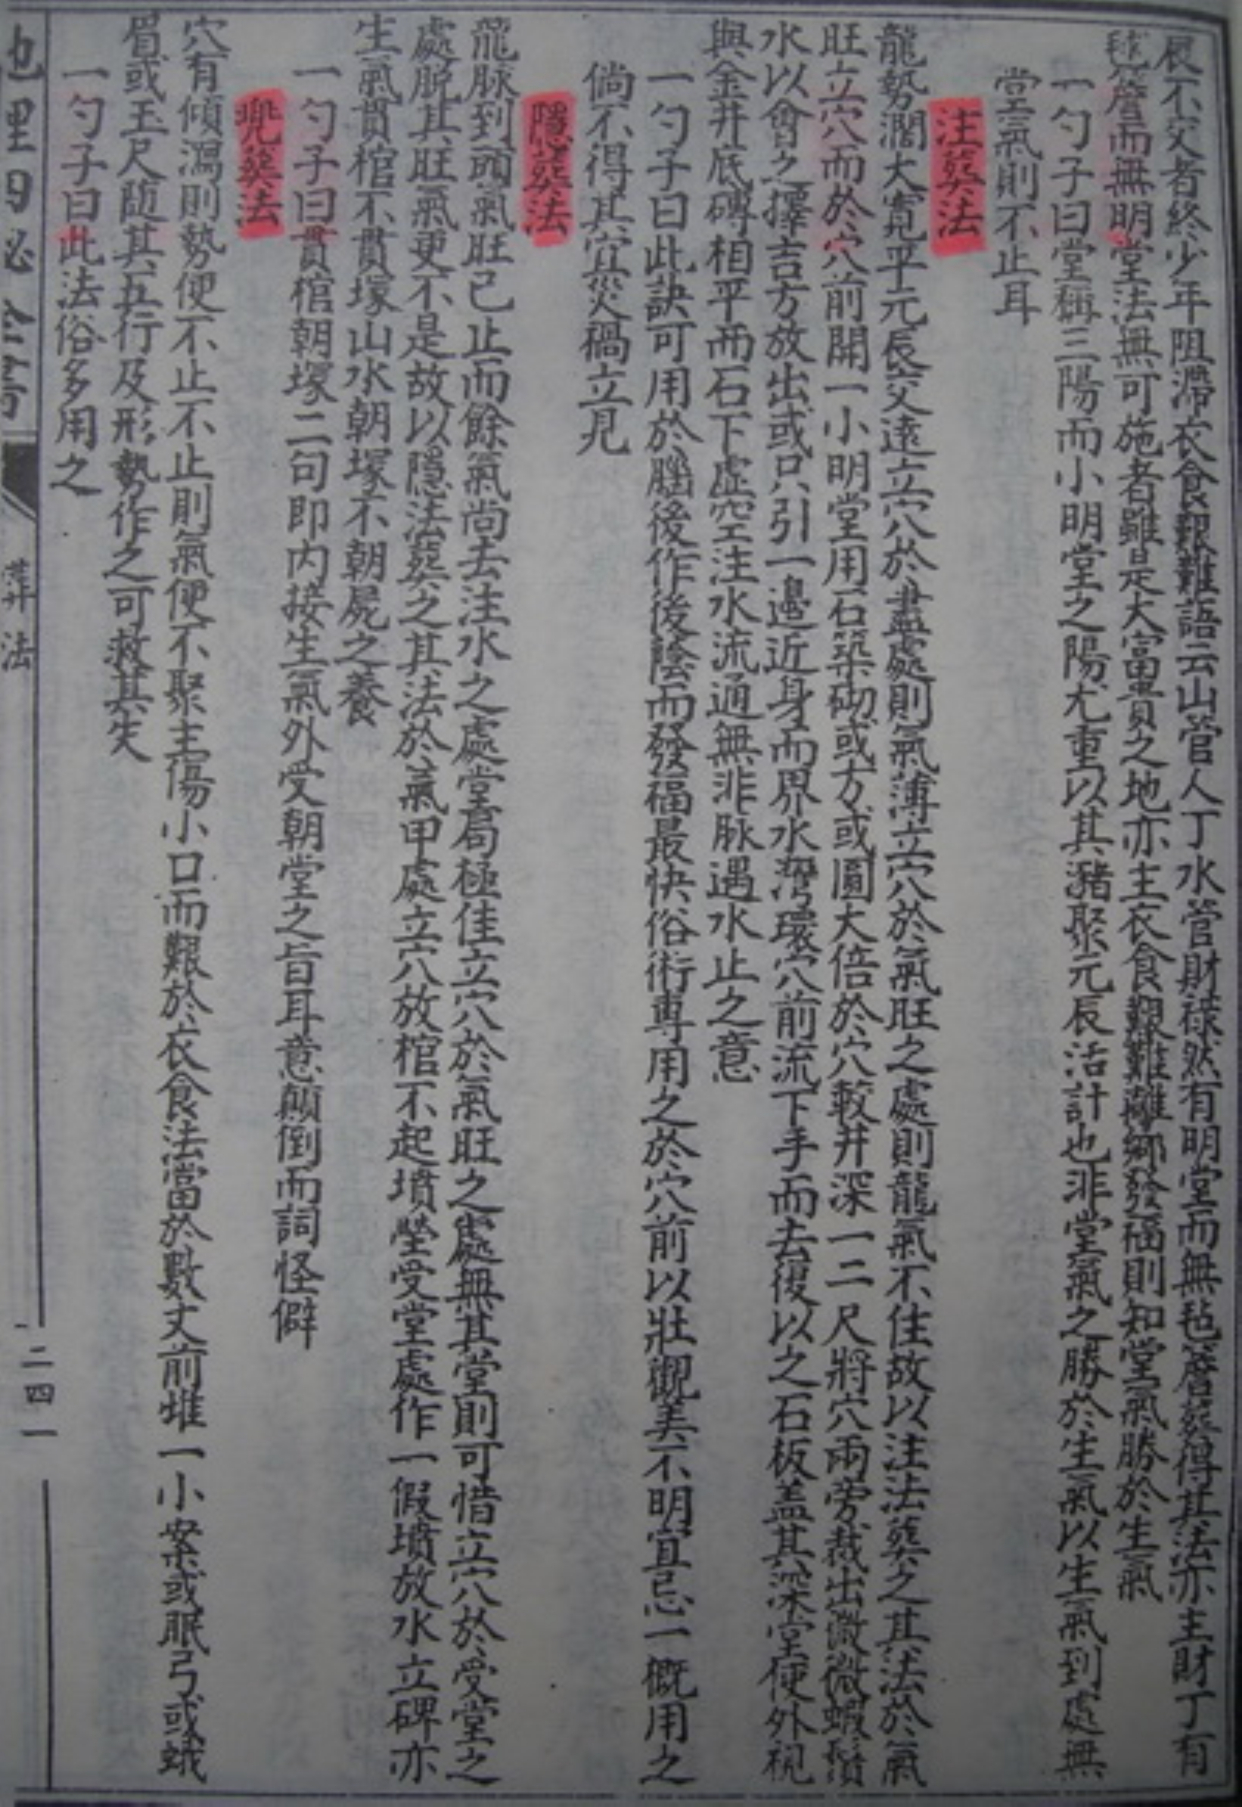 辰不交者終少年阻滯衣食艱難語云山管人丁水管財祿然有明堂而無毡簷葬得其法亦主財丁有
毡簷而無明堂法無可施者雖是大富貴之地亦主衣食艱難離鄉發福則知堂氣勝於生氣
一勺子曰堂稱三陽而小明堂之陽尤重以其瀦聚元辰活計也非堂氣之勝於生氣以生氣到處無
堂氣則不止耳
注葬法
龍勢濶大寬平元辰交遠立穴於盡處則氣薄立穴於氣旺之處則龍氣不住故以注法葬之其法於氣
旺立穴而於穴前開一小明堂用石築砌或方或圓大倍於穴較井深一二尺將穴兩旁裁出微微蝦鬚
水以會之擇吉方放出或只引一邊近身而界水灣環穴前流下手而去後以之石板盖其深堂使外視
與金井底磚相平而石下虛空注水流通無非脉遇水止之意
一勺子曰此訣可用於腦後作後陰而發福最快俗術專用之於穴前以壯觀美不明宜忌一概用之
倘不得其宜災禍立見
隱葬法
龍脉到頭氣旺已止而餘氣尚去注水之處堂局極佳立穴於氣旺之處無其堂則可惜立穴於受堂之
處脱其旺氣更不是故以隱法葬之其法於氣甲處立穴放棺不起墳塋受堂處作一假墳放水立碑亦
生氣貫棺不貫塚山水朝塚不朝屍之養
一勺子曰貫棺朝塚二句即内接生氣外受朝堂之旨耳意顛倒而詞怪僻
兠葬法
穴有傾瀉則勢便不止不止則氣便不聚主傷小口而艱於衣食法當於數丈前堆一小案或眠弓或蛾
眉或玉尺随其五行及形勢作之可救其失
一勺子曰此法俗多用之
地理四祕全書
葬法
二四一